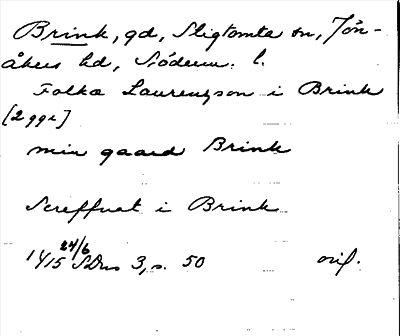 Brink, gd, Sligtomta sn, Jön-
åkers hd, Söderm. l.
Folka Laurensson i Brink
[2 ggr]
min gaard Brink
Screffuat i Brink
1415 24/6 SDns 3, s. 50 orig.